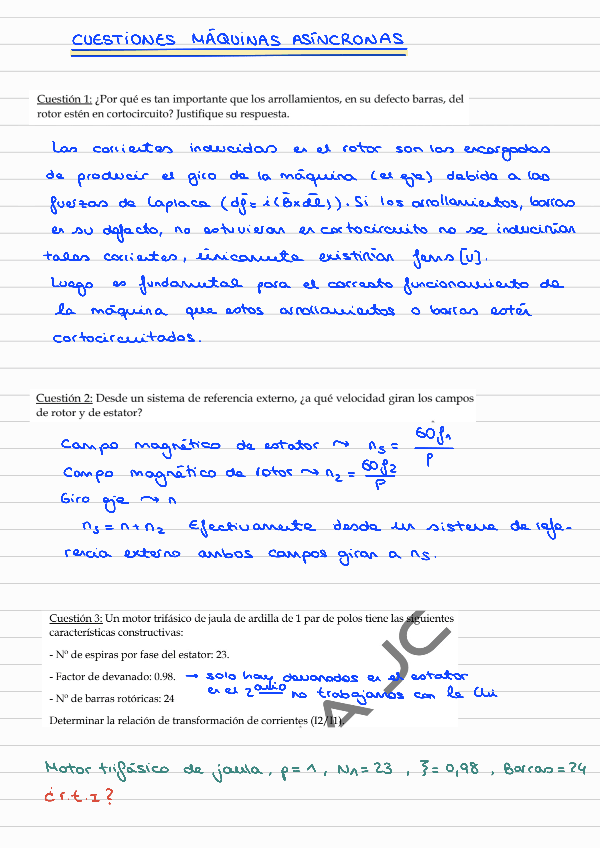 CUESTIONES MÁQUINAS ASÍNCRONAS
Cuestión 1: ¿Por qué es tan importante que los arrollamientos, en su defecto barras, del
rotor estén en cortocircuito? Justifique su respuesta.
Las corrientes inducidas en el rotor son las encargadas
de producir el giro de la máquina (el eje) debido a las
fuerzas de Laplace (df̄ = i(B̄×dl̄)). Si los arrollamientos, barras
en su defecto, no estuvieran en cortocircuito no se inducirían
tales corrientes, únicamente existirían fems [V].
Luego es fundamental para el correcto funcionamiento de
la máquina que estos arrollamientos o barras estén
cortocircuitados.
Cuestión 2: Desde un sistema de referencia externo, ¿a qué velocidad giran los campos
de rotor y de estator?
Campo magnético de estator ⤳ ns = 60f1/p
Campo magnético de rotor ⤳ n2 = 60f2/p
Giro eje ⤳ n
ns = n + n2 Efectivamente desde un sistema de refe-
rencia externo ambos campos giran a ns.
Cuestión 3: Un motor trifásico de jaula de ardilla de 1 par de polos tiene las siguientes
características constructivas:
- Nº de espiras por fase del estator: 23.
- Factor de devanado: 0.98. → solo hay devanados en el estator
en el 2ario no trabajamos con la
- Nº de barras rotóricas: 24
Determinar la relación de transformación de corrientes (I2/I1).
A JC
Motor trifásico de jaula, p = 1, N1 = 23, ξ = 0,98, Barras = 24
¿r.t.I?